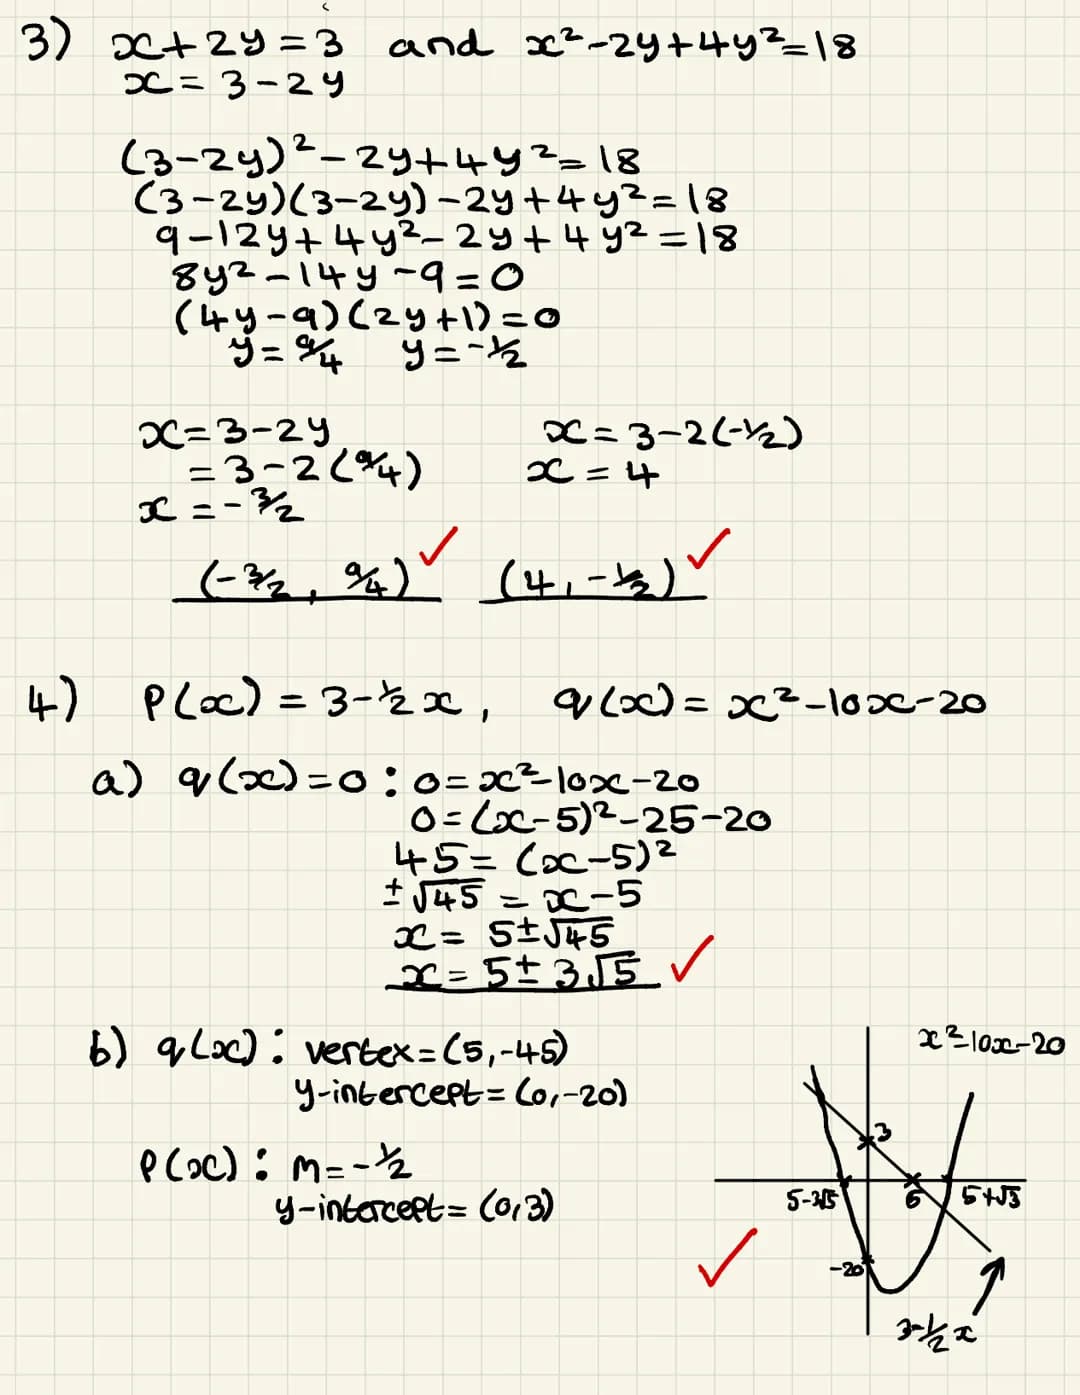 3) x+2y=3 and x²-2y+4y²=18
x=3-2y
(3-2y)²-2y+4y²=18
(3-2y)(3-2y)-2y+4y²=18
9-12y+4y²-2y+4y²=18
8y²-14y-9=0
(4y-9)(2y+1)=0
y=9/4 y=-1/2
x=3-2y x=3-2(-1/2)
=3-2(9/4) x=4
x=-3/2
(-3/2, 9/4) ✓ (4,-1/2) ✓
4) P(x)=3-½x, q(x)=x²-10x-20
a) q(x)=0: 0=x²-10x-20
0=(x-5)²-25-20
45=(x-5)²
±√45=x-5
x=5±√45
x=5±3√5 ✓
b) q(x): vertex=(5,-45)
y-intercept=(0,-20)
P(x): m=-½
y-intercept=(0,3)
✓
x²-10x-20
3
5-3√5 6 5+√5
-20
3-½x